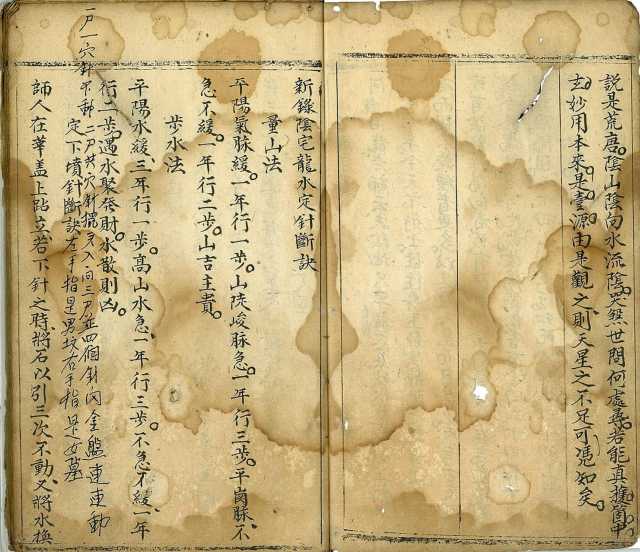 說是荒唐。陰山陰向水流陰。哭然世間何處尋。若能真接箇中
玄妙用。本來是壹源。由是觀之。則天星之不足可憑知矣。
新錄陰宅龍水定針斷訣
量山法
平陽氣脉緩。一年行一步。山陡峻脉急。一年行三步。平崗脉、不
急不緩。一年行二步。山吉主貴。
步水法
平陽水緩三年行一步。高山水急一年行三步。不急不緩、一年
行二步。遇水聚發財。水散則凶。
一尸一穴針不動 二尸共穴針擺 入向三尸並四個針內金盤連連動
定下墳針斷訣 左手指是男坟右手指是女墓
師人在華盖上跕立若下針之時、將石以引三次不動、又將水換